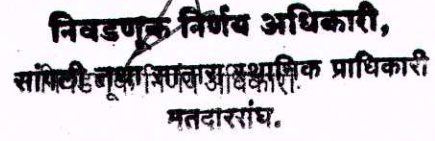 निवडणूक निर्णय अधिकारी,
सांगली तथा सातारा स्थानिक प्राधिकारी
मतदारसंघ.